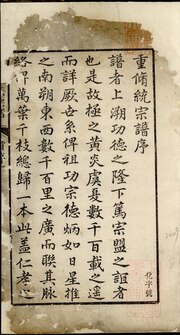 重脩統宗譜序
譜者上溯功德之隆下篤宗盟之誼者
也是故極之黃炎虞夏數千百載之遥
而詳厥吾系俾祖功宗德炳如日星推
之南朔東西數千百里之廣而聯其脉
絡俾萬葉千枝總歸一本此蓋仁孝之
化字號